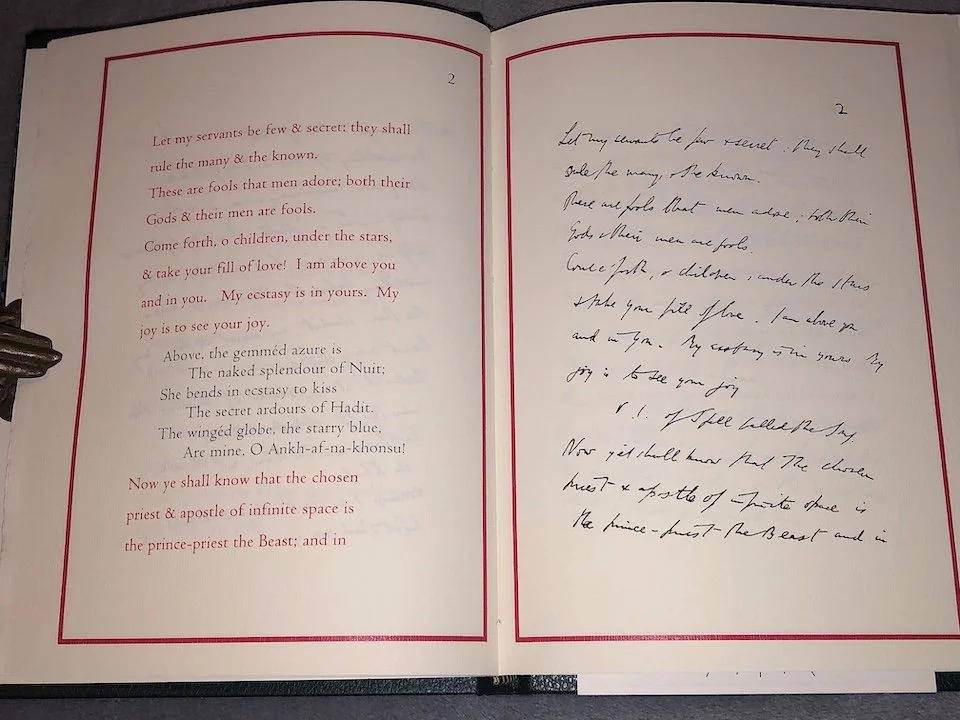 2
Let my servants be few & secret: they shall
rule the many & the known.
These are fools that men adore; both their
Gods & their men are fools.
Come forth, o children, under the stars,
& take your fill of love! I am above you
and in you. My ecstasy is in yours. My
joy is to see your joy.
Above, the gemméd azure is
The naked splendour of Nuit;
She bends in ecstasy to kiss
The secret ardours of Hadit.
The wingéd globe, the starry blue,
Are mine, O Ankh-af-na-khonsu!
Now ye shall know that the chosen
priest & apostle of infinite space is
the prince-priest the Beast; and in
2
Let my servants be few & secret: they shall
rule the many & the known.
These are fools that men adore; both their
Gods & their men are fools.
Come forth, o children, under the stars
& take your fill of love. I am above you
and in you. My ecstasy is in yours My
joy is to see your joy
V. 1. of Spell called the Song.
Now ye shall know that the chosen
priest & apostle of infinite space is
the prince-priest the Beast and in